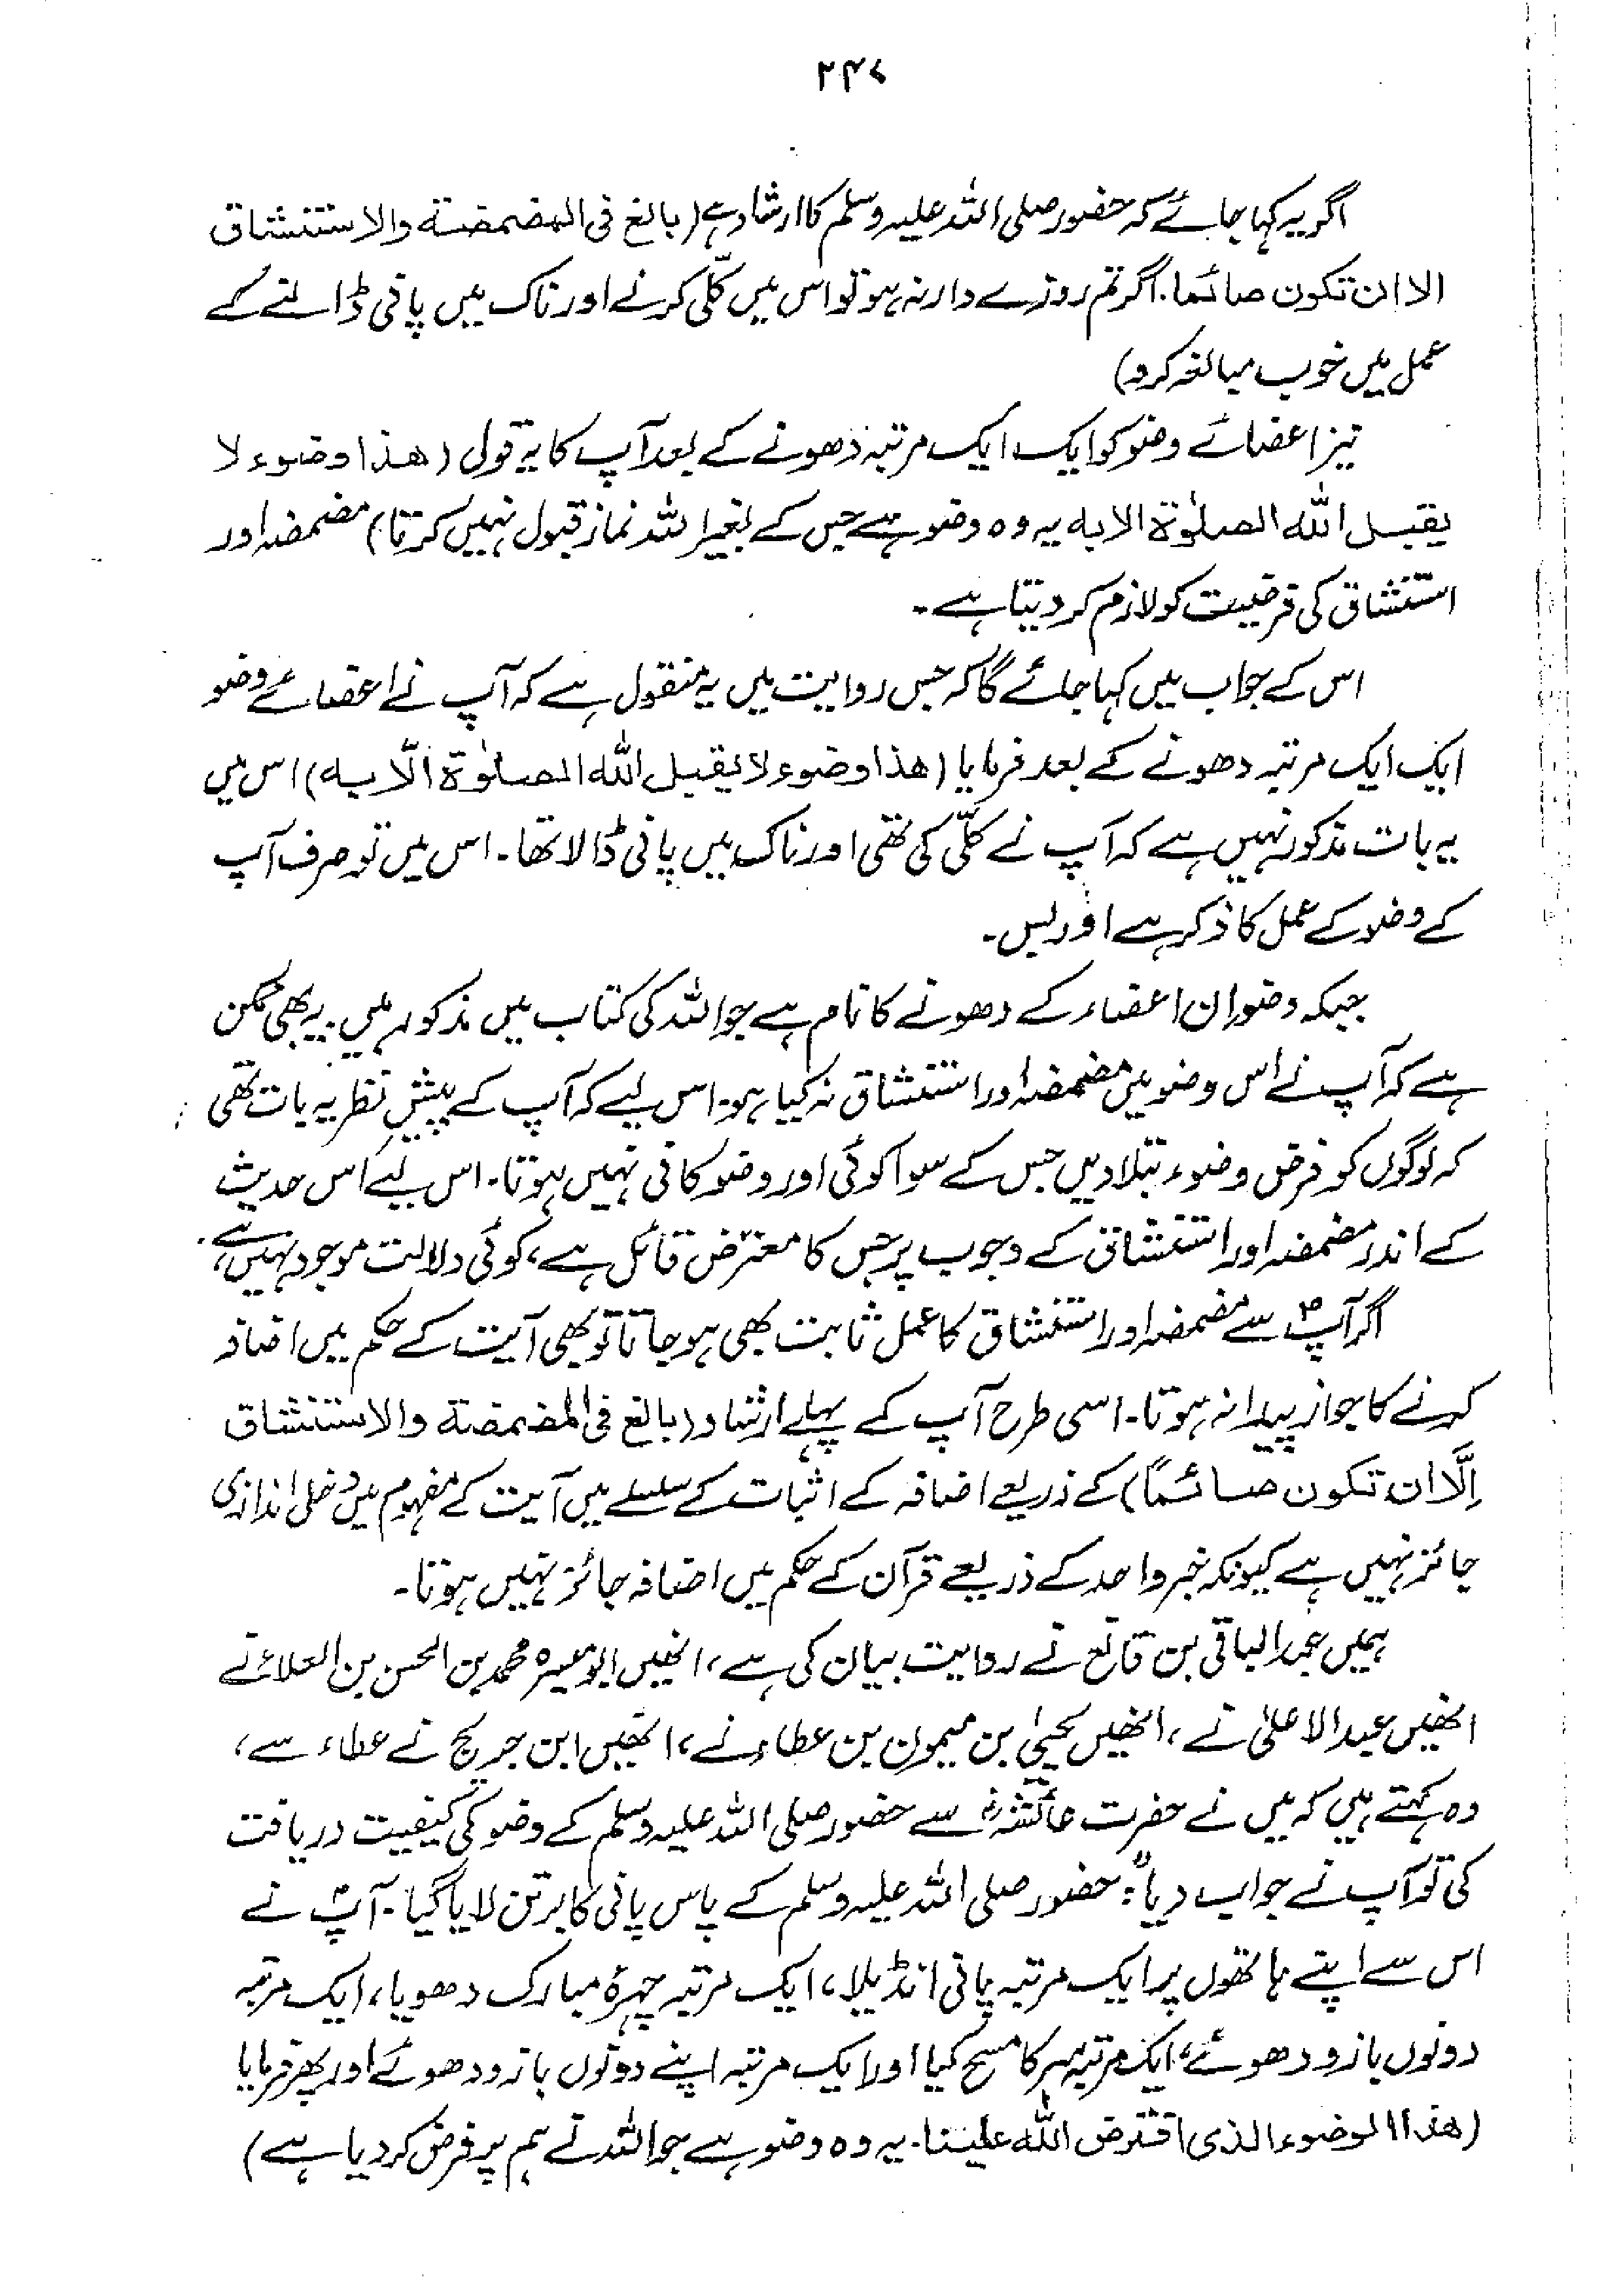 ۲۴۷
اگر یہ کہا جائے کہ حضور صلی اللہ علیہ وسلم کا ارشاد ہے (بالغ فی المضمضۃ والاستنشاق
الا ان تکون صائما۔ اگر تم روزے دار نہ ہو تو اس میں کلّی کرنے اور ناک میں پانی ڈالنے کے
عمل میں خوب مبالغہ کرو)
نیز اعضائے وضو کو ایک ایک مرتبہ دھونے کے بعد آپ کا یہ قول (ھذا وضوء لا
یقبل اللہ الصلوٰۃ الا بہ یہ وہ وضو ہے جس کے بغیر اللہ نماز قبول نہیں کرتا) مضمضہ اور
استنشاق کی فرضیت کو لازم کر دیتا ہے۔
اس کے جواب میں کہا جائے گا کہ جس روایت میں یہ منقول ہے کہ آپ نے اعضائے وضو
ایک ایک مرتبہ دھونے کے بعد فرمایا (ھذا وضوء لا یقبل اللہ الصلوٰۃ الّا بہ) اس میں
یہ بات مذکور نہیں ہے کہ آپ نے کلّی کی تھی اور ناک میں پانی ڈالا تھا۔ اس میں تو صرف آپ
کے وضو کے عمل کا ذکر ہے اور بس۔
جبکہ وضو ان اعضاء کے دھونے کا نام ہے جو اللہ کی کتاب میں مذکور ہیں۔ یہ بھی ممکن
ہے کہ آپ نے اس وضو میں مضمضہ اور استنشاق نہ کیا ہو۔ اس لیے کہ آپ کے پیشِ نظر یہ بات تھی
کہ لوگوں کو فرض وضوء بتلا دیں جس کے سوا کوئی اور وضو کافی نہیں ہوتا۔ اس لیے اس حدیث
کے اندر مضمضہ اور استنشاق کے وجوب پر جس کا معترض قائل ہے، کوئی دلالت موجود نہیں ہے۔
اگر آپؐ سے مضمضہ اور استنشاق کا عمل ثابت بھی ہو جاتا تو بھی آیت کے حکم میں اضافہ
کرنے کا جواز پیدا نہ ہوتا۔ اسی طرح آپ کے پہلے ارشاد (بالغ فی المضمضۃ والاستنشاق
اِلَّا ان تکون صائمًا) کے ذریعے اضافہ کے اثبات کے سلسلے میں آیت کے مفہوم میں دخل اندازی
جائز نہیں ہے کیونکہ خبر واحد کے ذریعے قرآن کے حکم میں اضافہ جائز نہیں ہوتا۔
ہمیں عبدالباقی بن قانع نے روایت بیان کی ہے، انھیں ابو میسرہ محمد بن الحسن بن العلاء نے
انھیں عبدالاعلیٰ نے، انھیں یحییٰ بن میمون بن عطاء نے، انھیں ابن جریج نے عطاء سے،
وہ کہتے ہیں کہ میں نے حضرت عائشہؓ سے حضور صلی اللہ علیہ وسلم کے وضو کی کیفیت دریافت
کی تو آپ نے جواب دیا: "حضور صلی اللہ علیہ وسلم کے پاس پانی کا برتن لایا گیا۔ آپؐ نے
اس سے اپنے ہاتھوں پر ایک مرتبہ پانی انڈیلا، ایک مرتبہ چہرۂ مبارک دھویا، ایک مرتبہ
دونوں بازو دھوئے، ایک مرتبہ سر کا مسح کیا اور ایک مرتبہ اپنے دونوں بازو دھوئے اور پھر فرمایا
(ھذا الوضوء الذی افترض اللہ علینا۔ یہ وہ وضو ہے جو اللہ نے ہم پر فرض کر دیا ہے)